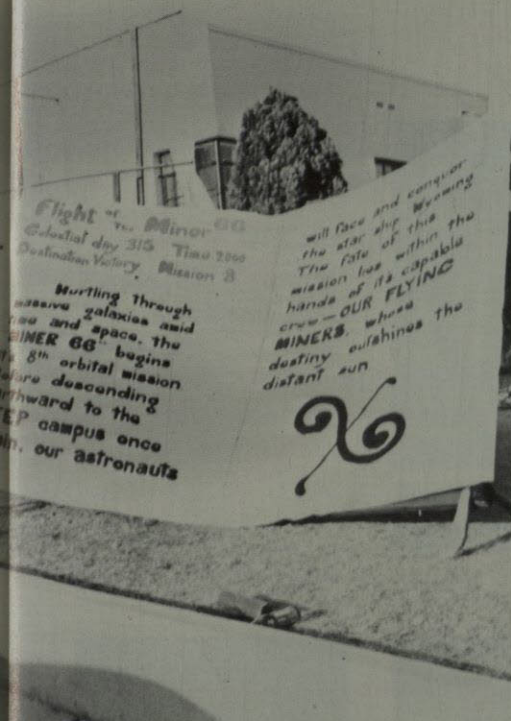 Flight of The Minor 66
Celestial day 315 Time 2000
Destination Victory. Mission 8
Hurtling through
massive galaxies amid
time and space, the
MINER 66" begins
8th orbital mission
before descending
earthward to the
TEP campus once
our astronauts
will face and conquer
the star ship Wyoming
The fate of this
mission lies within the
hands of its capable
crew — OUR FLYING
MINERS, whose
destiny outshines the
distant sun